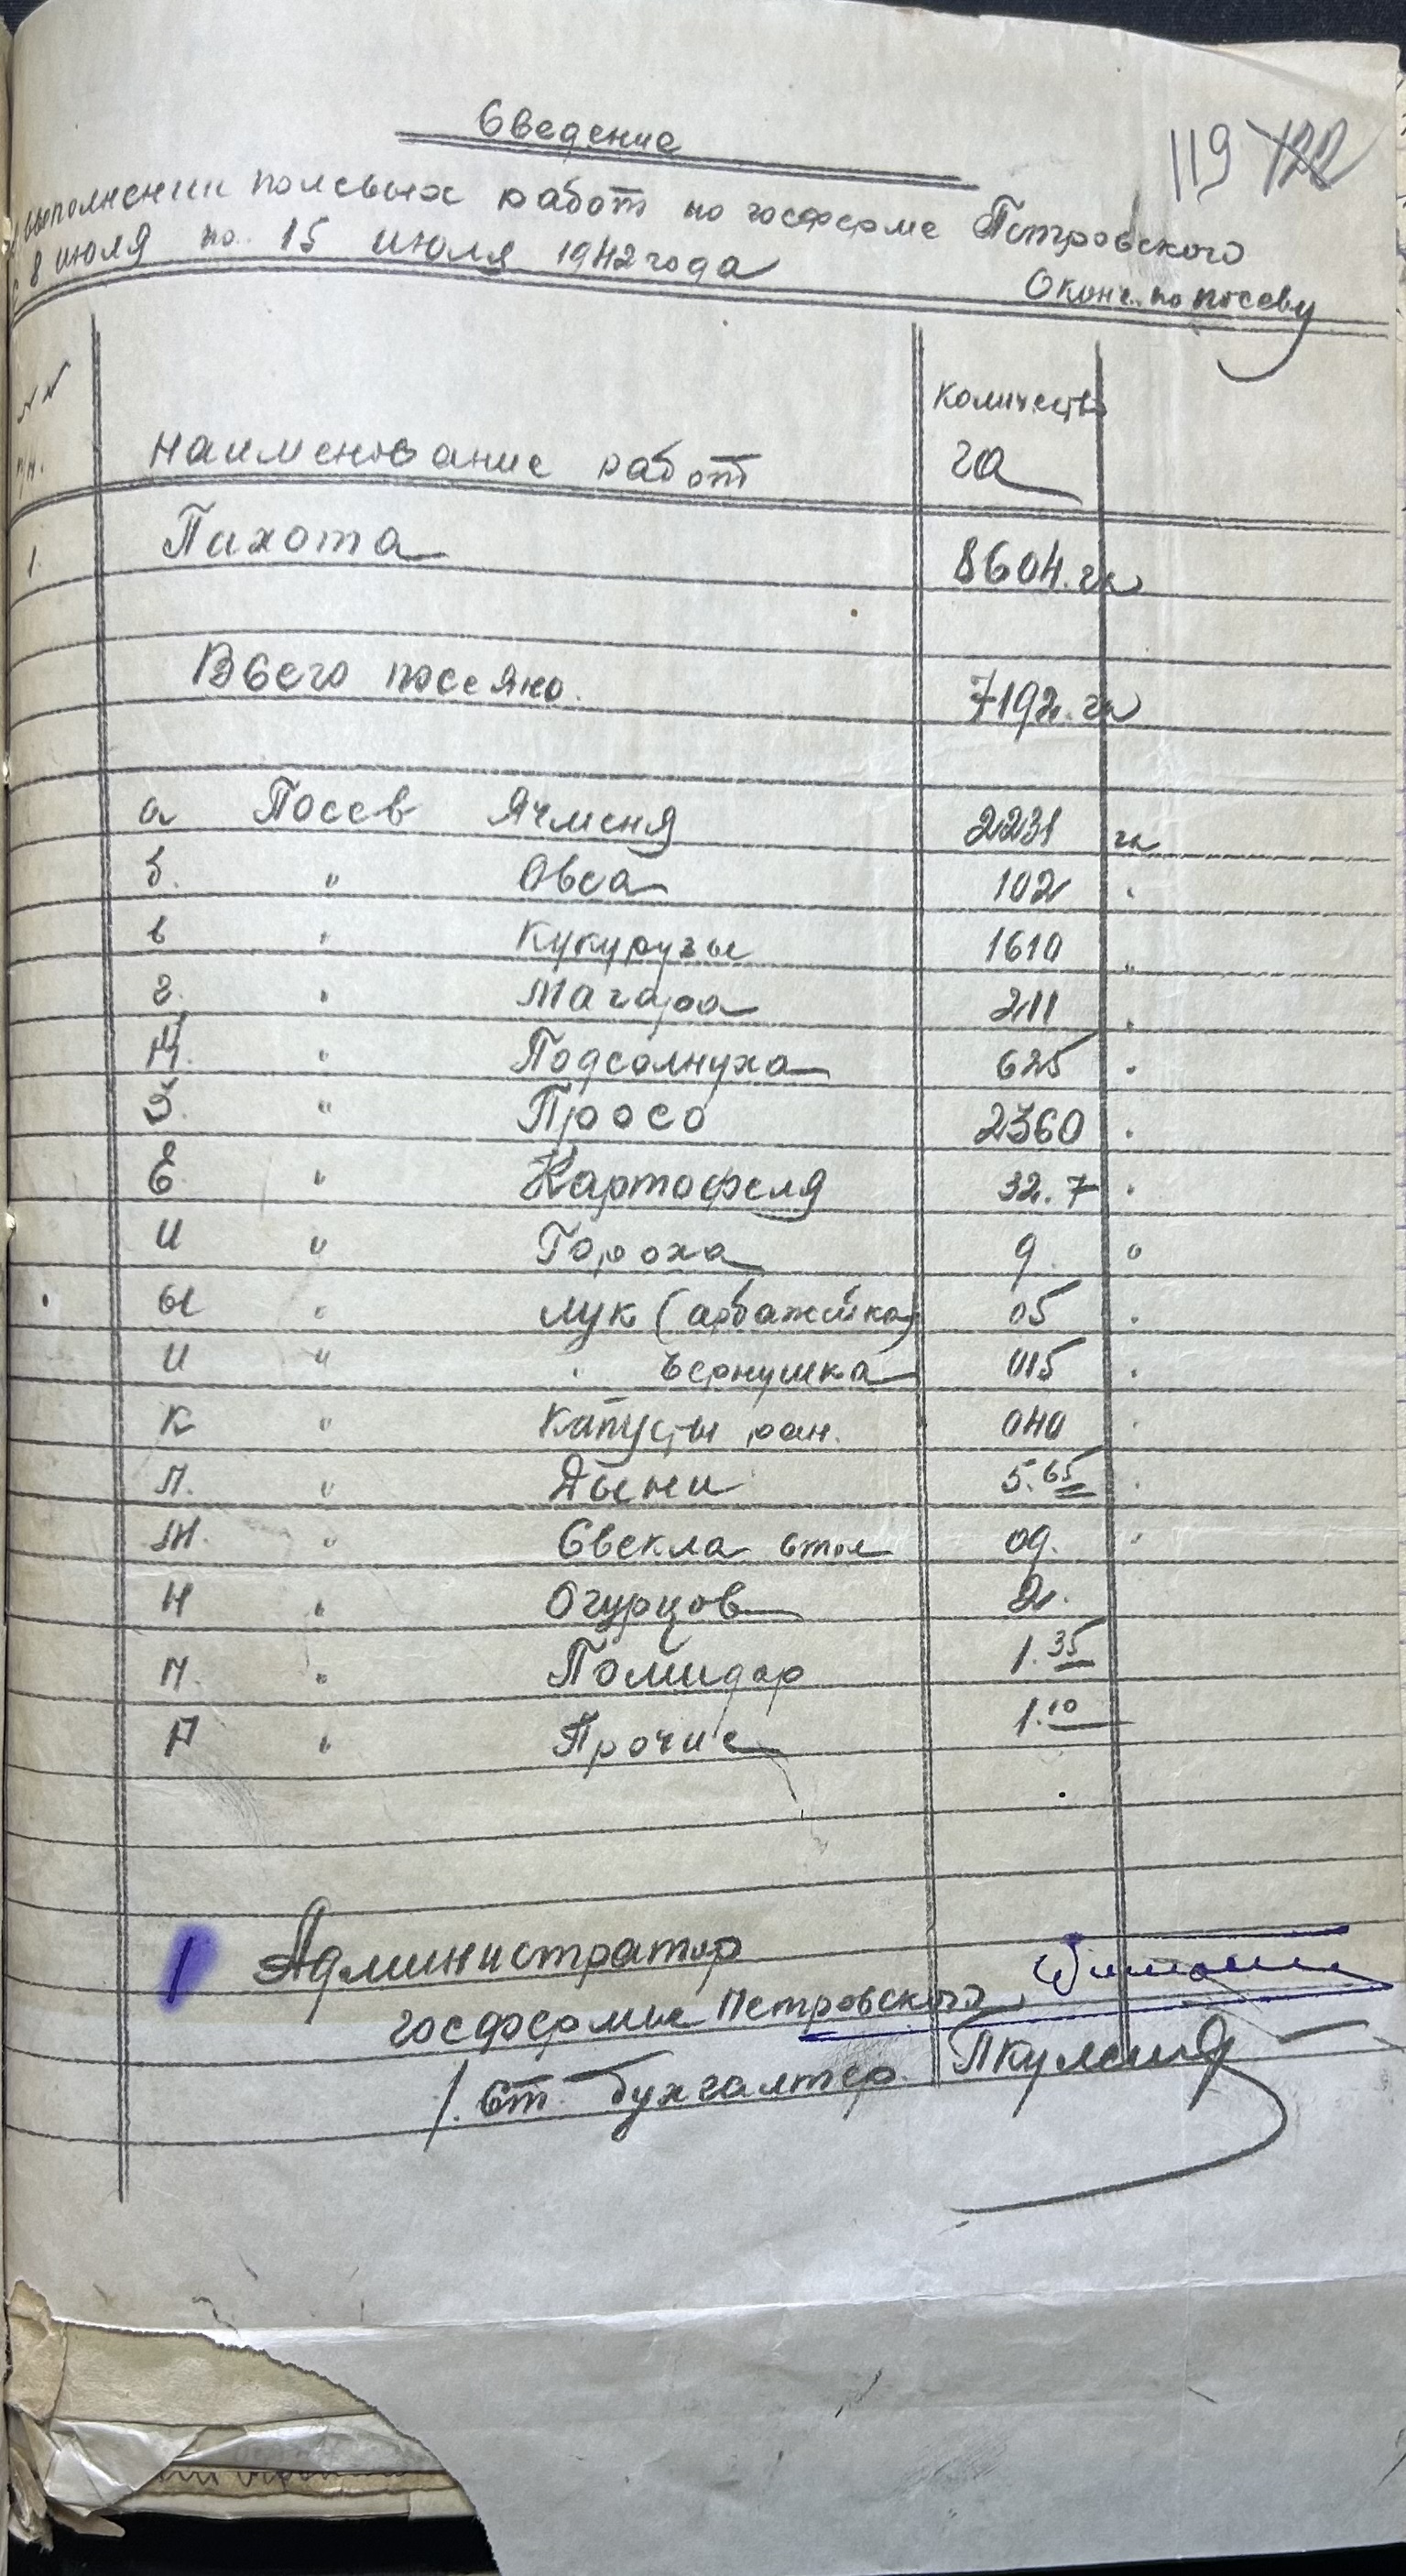 Сведение
119 122
о выполнении полевых работ по госферме Петровского
с 8 июля по 15 июля 1942 года
Оконч. по посеву
№ №
п/п.
Наименование работ
Количеств
га
1. Пахота 8604. га
Всего посеяно. 7192. га
а Посев Ячменя 2231 га
б. " Овса 102 "
в " Кукурузы 1610 "
г. " Магара 211 "
Д. " Подсолнуха 625 "
" Просо 2360 "
Е " Картофеля 32.7 "
И " Гороха 9. "
Ы " Лук (арбажейка) 05 "
И " " Чернушка 015 "
К " Капусты ран. 040 "
Л. " Дыни 5.65 "
М. " Свекла стол 09. "
Н " Огурцов 2.
П. " Помидор 1.35
Р " Прочие 1.10
Администратор
госфермы Петровского
/. Ст. бухгалтер